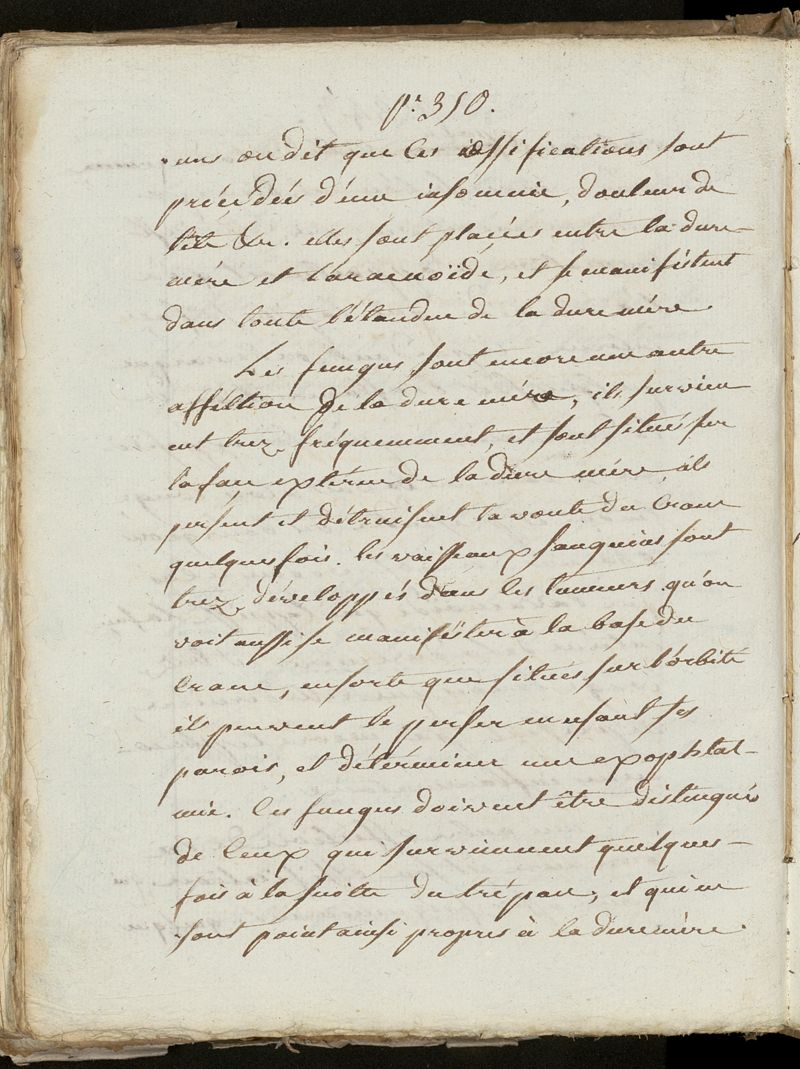 pe. 310.
uns on dit que ces ossifications sont
précédées d'une insomnie, douleur de
tête &c. elles sont placées entre la dure-
mére et l'aracnoïde, et se manifestent
dans toute l'étandue de la dure mére
Les fungus sont encore une autre
afféction de la dure mére, ils survien
ent trez fréquemment, et sont situés sur
la face extérne de la dure mére, ils
persent et détruisent la voute du Crane
quelquesfois. les vaisseaux sanguins sont
trez développés dans les tumeurs qu'on
voit aussi se manifester à la base du
Crane, ensorte que situés sur l'orbite
ils peuvent le perser en usant ses
parois, et détérminer une exophtal-
mie. Ces fungus doivent être distingués
de Ceux qui surviennent quelques-
fois à la suitte du trépan, et qui ne
sont point ainsi propres à la dure mére